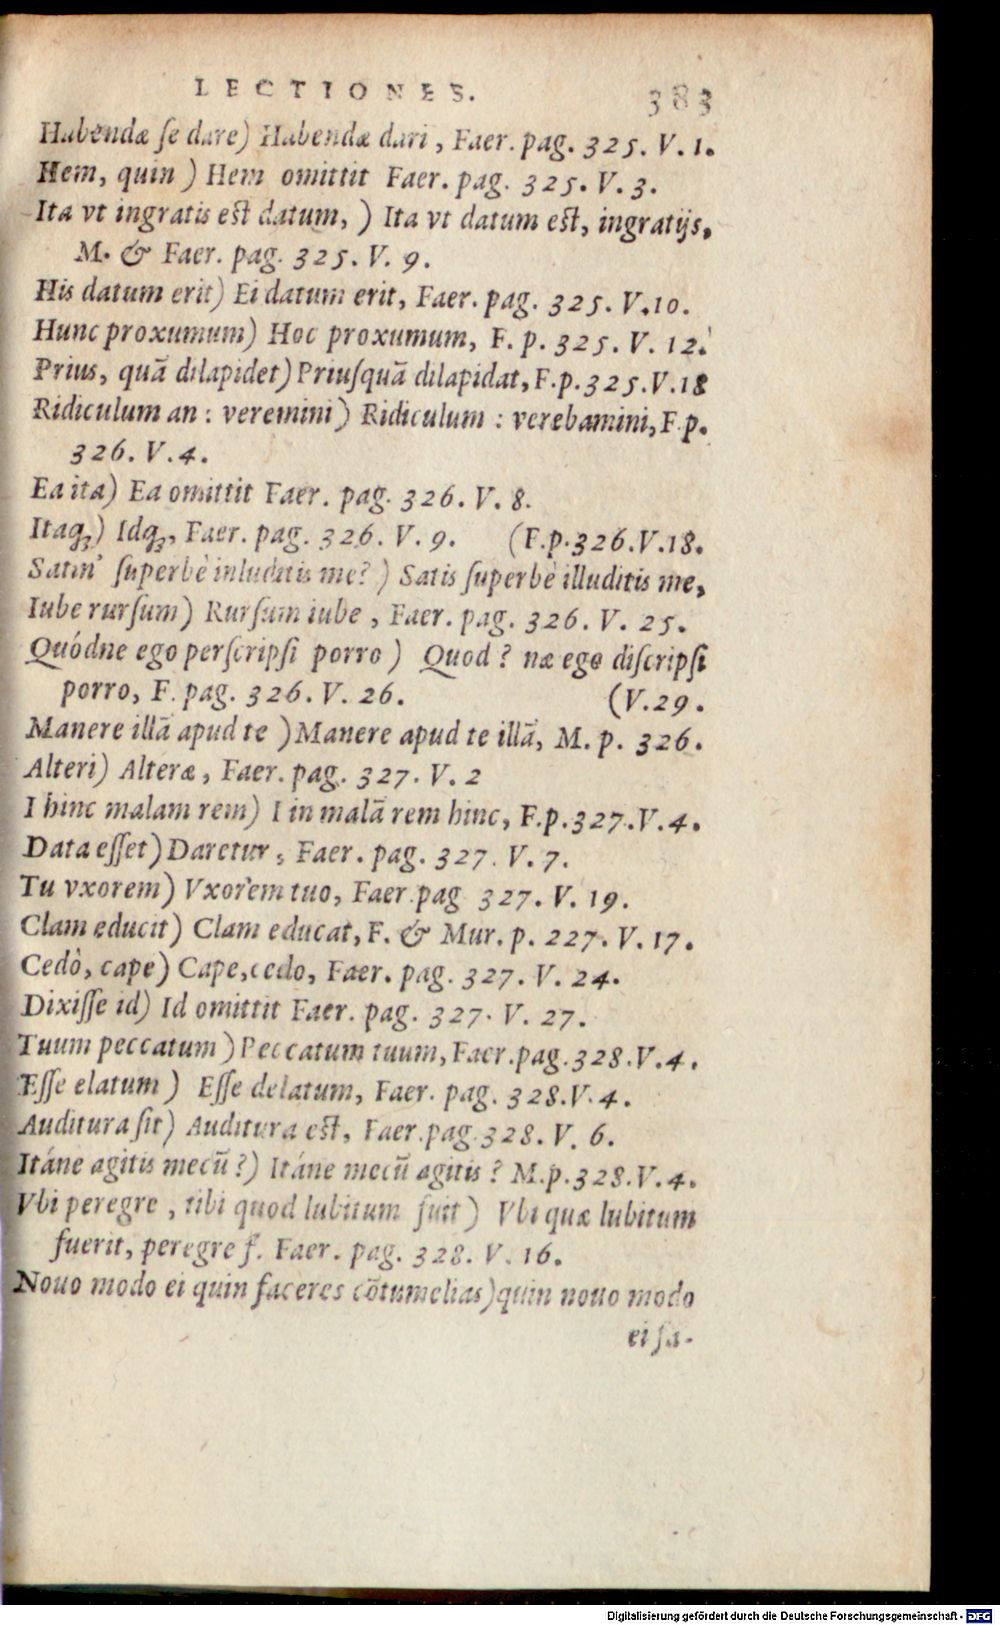 LECTIONES. 383
Habendæ se dare) Habendæ dari, Faer. pag. 325. V. 1.
Hem, quin) Hem omittit Faer. pag. 325. V. 3.
Ita vt ingratis est datum,) Ita vt datum est, ingratijs,
M. & Faer. pag. 325. V. 9.
His datum erit) Ei datum erit, Faer. pag. 325. V. 10.
Hunc proxumum) Hoc proxumum, F. p. 325. V. 12.
Prius, quā dilapidet) Priusquā dilapidat, F. p. 325. V. 18
Ridiculum an: veremini) Ridiculum: verebamini, F. p.
326. V. 4.
Ea ita) Ea omittit Faer. pag. 326. V. 8.
Itaqꝫ) Idqꝫ, Faer. pag. 326. V. 9. (F. p. 326. V. 18.
Satin' superbè inluditis me?) Satis superbè illuditis me,
Iube rursum) Rursum iube, Faer. pag. 326. V. 25.
Quódne ego perscripsi porro) Quod? næ ego discripsi
porro, F. pag. 326. V. 26. (V. 29.
Manere illā apud te) Manere apud te illā, M. p. 326.
Alteri) Alteræ, Faer. pag. 327. V. 2
I hinc malam rem) I in malā rem hinc, F. p. 327. V. 4.
Data esset) Daretur, Faer. pag. 327. V. 7.
Tu vxorem) Vxorem tuo, Faer. pag 327. V. 19.
Clam educit) Clam educat, F. & Mur. p. 227. V. 17.
Cedò, cape) Cape, cedo, Faer. pag. 327. V. 24.
Dixisse id) Id omittit Faer. pag. 327. V. 27.
Tuum peccatum) Peccatum tuum, Faer. pag. 328. V. 4.
Esse elatum) Esse delatum, Faer. pag. 328. V. 4.
Auditura sit) Auditura est, Faer. pag. 328. V. 6.
Itáne agitis mecū?) Itáne mecū agitis? M. p. 328. V. 4.
Vbi peregre, tibi quod lubitum fuit) Vbi quæ lubitum
fuerit, peregre f. Faer. pag. 328. V. 16.
Nouo modo ei quin faceres cōtumelias) quin nouo modo
ei fa-
Digitalisierung gefördert durch die Deutsche Forschungsgemeinschaft - DFG